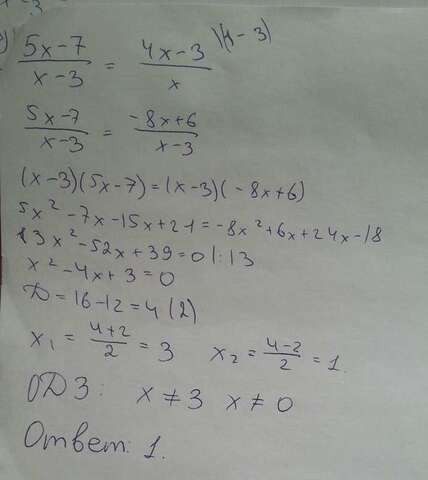 5x-7/x-3 = 4x-3/x \(x-3)
5x-7/x-3 = -8x+6/x-3
(x-3)(5x-7)=(x-3)(-8x+6)
5x²-7x-15x+21=-8x²+6x+24x-18
13x²-52x+39=0 |:13
x²-4x+3=0
D=16-12=4 (2)
x₁ = 4+2/2 = 3   x₂ = 4-2/2 = 1.
ОДЗ: x≠3 x≠0
Ответ: 1.